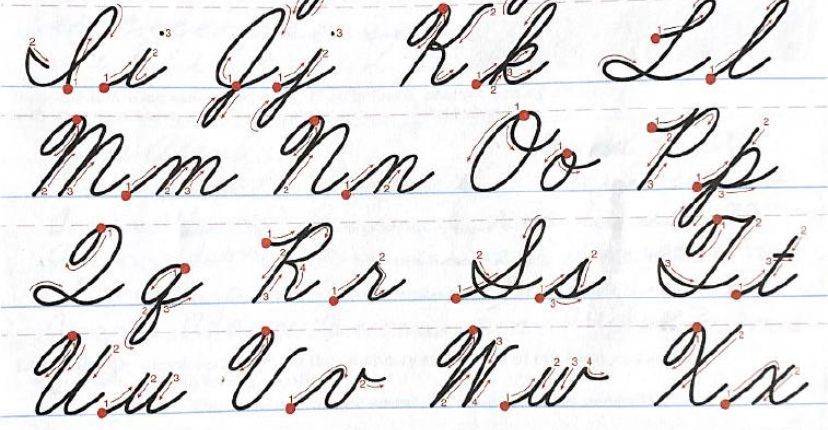 I i J j K k L l
M m N n O o P p
Q q R r S s T t
U u V v W w X x